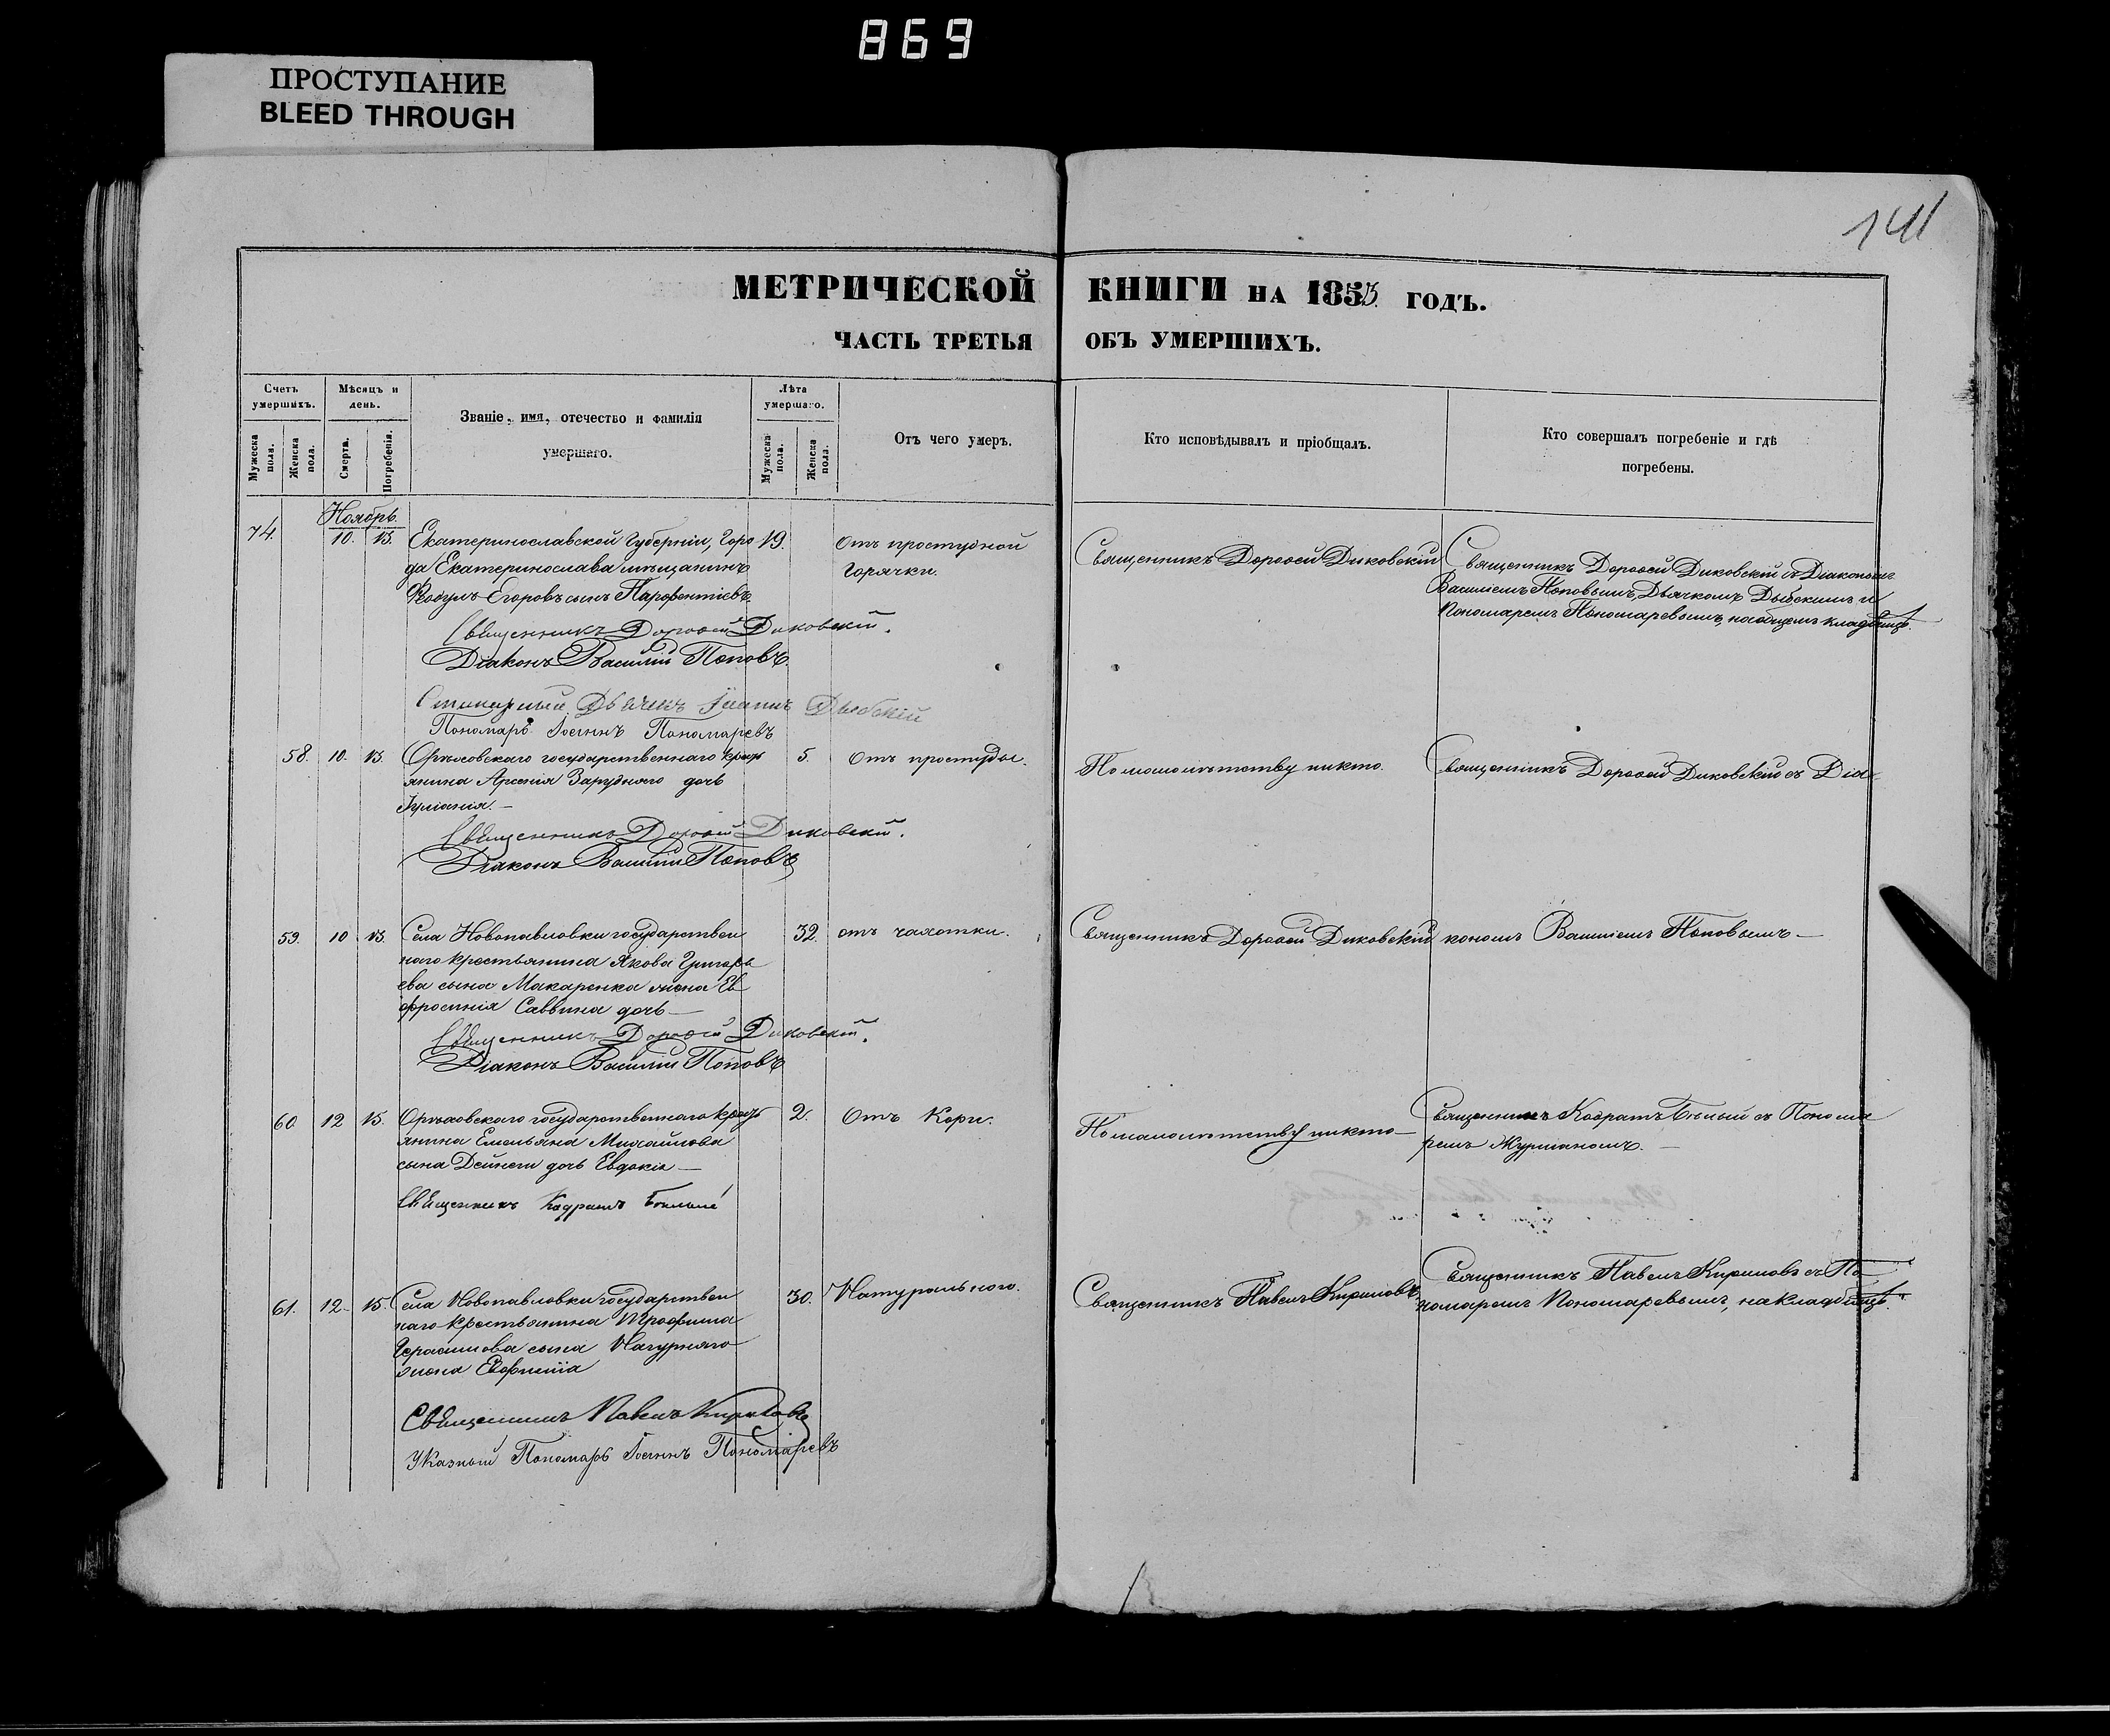 869
ПРОСТУПАНИЕ
BLEED THROUGH
141
МЕТРИЧЕСКОЙ КНИГИ НА 1853 ГОДЪ.
ЧАСТЬ ТРЕТЬЯ ОБЪ УМЕРШИХЪ.
Счетъ умершихъ.
Мужеска пола.
Женска пола.
Мѣсяцъ и день.
Смерти.
Погребенія.
Званіе, имя, отечество и фамилія умершаго.
Лѣта умершаго.
Мужеска пола.
Женска пола.
Отъ чего умеръ.
Кто исповѣдывалъ и пріобщалъ.
Кто совершалъ погребеніе и гдѣ погребены.
Ноябрь.
74. 10. 13. Екатеринославской Губерніи, Горо 19. Отъ простудной
да Екатеринослава мѣщанинъ горячки.
Егоровъ сынъ Парфентіевъ.
Священникъ Дороѳей Диковскій
Священникъ Дороѳей Диковскій съ Діакономъ
Василіемъ Поповымъ, Дьячкомъ Дыбскимъ и
Пономаремъ Пономаревымъ, на общемъ кладбищѣ.
Священникъ Дороѳей Диковскій.
Діаконъ Василій Поповъ.
Дьячекъ Іоаннъ Дыбскій
Пономарь Іоаннъ Пономаревъ
58. 10. 13. Орѣховскаго государственнаго крест 5. Отъ простуды.
янина Арсенія Заруднаго дочь
Іуліанія.—
По малолѣтству никто.
Священникъ Дороѳей Диковскій съ Діа-
Священникъ Дороѳей Диковскій.
Діаконъ Василій Поповъ
59. 10 13. Села Новопавловки государствен 32. отъ чахотки.
наго крестьянина Якова Григорь
ева сына Макаренка жена Ев
фросинія Саввина дочь—
Священникъ Дороѳей Диковскій
кономъ Василіемъ Поповымъ—
Священникъ Дороѳей Диковскій.
Діаконъ Василій Поповъ
60 12 15. Орѣховскаго государственнаго крест 2. Отъ Кори.
янина Емельяна Михайлова
сына Дейнеги дочь Евдокія—
По малолѣтству никто—
Священникъ Кодратъ Бѣлый съ Понома
ремъ Журманомъ.—
Священникъ Кодратъ
61. 12. 15. Села Новопавловки государствен 30. Натурально.
наго крестьянина Трофима
Герасимова сына Нагурняго
жена Евфимія
Священникъ Павелъ Кириловъ
Священникъ Павелъ Кириловъ съ По
номаремъ Пономаревымъ, на кладбищѣ.
Священникъ Павелъ Кириловъ
Указный Пономарь Іоаннъ Пономаревъ